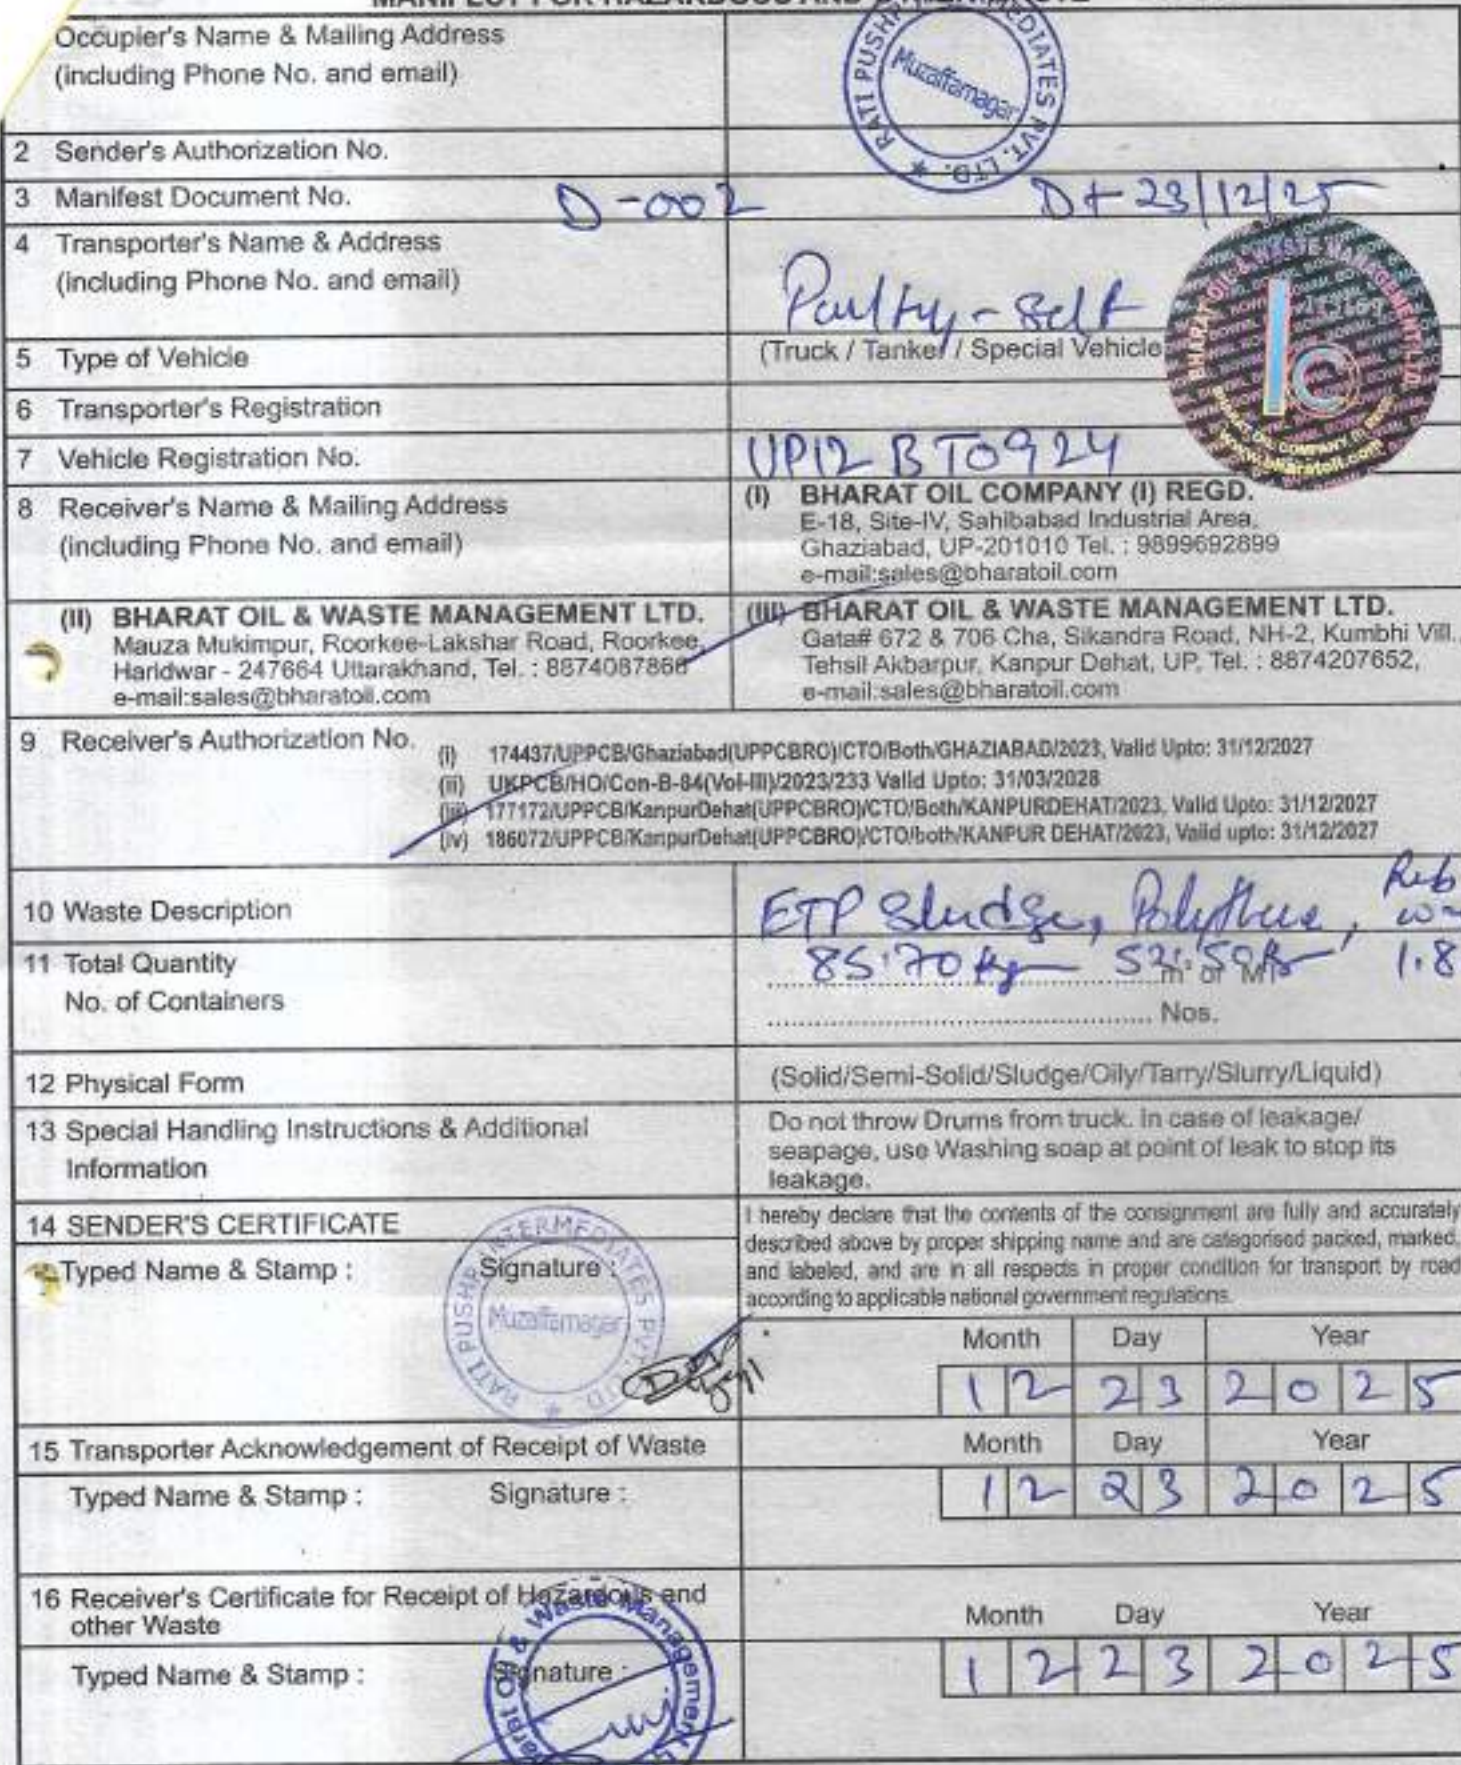 MANIFEST FOR HAZARDOUS AND OTHER WASTE
Occupier's Name & Mailing Address
(including Phone No. and email)
RATI PUSHP INTERMEDIATES PVT. LTD.
Muzaffarnagar
2 Sender's Authorization No.
3 Manifest Document No. D-002 Dt 23/12/25
4 Transporter's Name & Address
(including Phone No. and email)
BHARAT OIL & WASTE MANAGEMENT LTD
BHARAT OIL COMPANY (I) REGD.
www.bharatoil.com
5 Type of Vehicle (Truck / Tanker / Special Vehicle
6 Transporter's Registration
7 Vehicle Registration No. UP12 BT0924
8 Receiver's Name & Mailing Address
(including Phone No. and email)
(I) BHARAT OIL COMPANY (I) REGD.
E-18, Site-IV, Sahibabad Industrial Area,
Ghaziabad, UP-201010 Tel. : 9899692899
e-mail:sales@bharatoil.com
(II) BHARAT OIL & WASTE MANAGEMENT LTD.
Mauza Mukimpur, Roorkee-Lakshar Road, Roorkee,
Haridwar - 247664 Uttarakhand, Tel. : 8874087866
e-mail:sales@bharatoil.com
(III) BHARAT OIL & WASTE MANAGEMENT LTD.
Gata# 672 & 706 Cha, Sikandra Road, NH-2, Kumbhi Vill.,
Tehsil Akbarpur, Kanpur Dehat, UP, Tel. : 8874207652,
e-mail:sales@bharatoil.com
9 Receiver's Authorization No.
(i) 174437/UPPCB/Ghaziabad(UPPCBRO)/CTO/Both/GHAZIABAD/2023, Valid Upto: 31/12/2027
(ii) UKPCB/HO/Con-B-84(Vol-III)/2023/233 Valid Upto: 31/03/2028
(iii) 177172/UPPCB/KanpurDehat(UPPCBRO)/CTO/Both/KANPURDEHAT/2023, Valid Upto: 31/12/2027
(iv) 186072/UPPCB/KanpurDehat(UPPCBRO)/CTO/both/KANPUR DEHAT/2023, Valid upto: 31/12/2027
10 Waste Description ETP Sludge,
11 Total Quantity 85.70 kg m³ or MT 1.8
No. of Containers Nos.
12 Physical Form (Solid/Semi-Solid/Sludge/Oily/Tarry/Slurry/Liquid)
13 Special Handling Instructions & Additional
Information
Do not throw Drums from truck. In case of leakage/
seapage, use Washing soap at point of leak to stop its
leakage.
14 SENDER'S CERTIFICATE
Typed Name & Stamp : Signature :
RATI PUSHP INTERMEDIATES PVT. LTD.
Muzaffarnagar
I hereby declare that the contents of the consignment are fully and accurately
described above by proper shipping name and are categorised packed, marked,
and labeled, and are in all respects in proper condition for transport by road
according to applicable national government regulations.
Month Day Year
12 23 2025
15 Transporter Acknowledgement of Receipt of Waste
Month Day Year
Typed Name & Stamp : Signature :
12 23 2025
16 Receiver's Certificate for Receipt of Hazardous and
other Waste
Month Day Year
Typed Name & Stamp : Signature :
12 23 2025
Oil & Waste Management